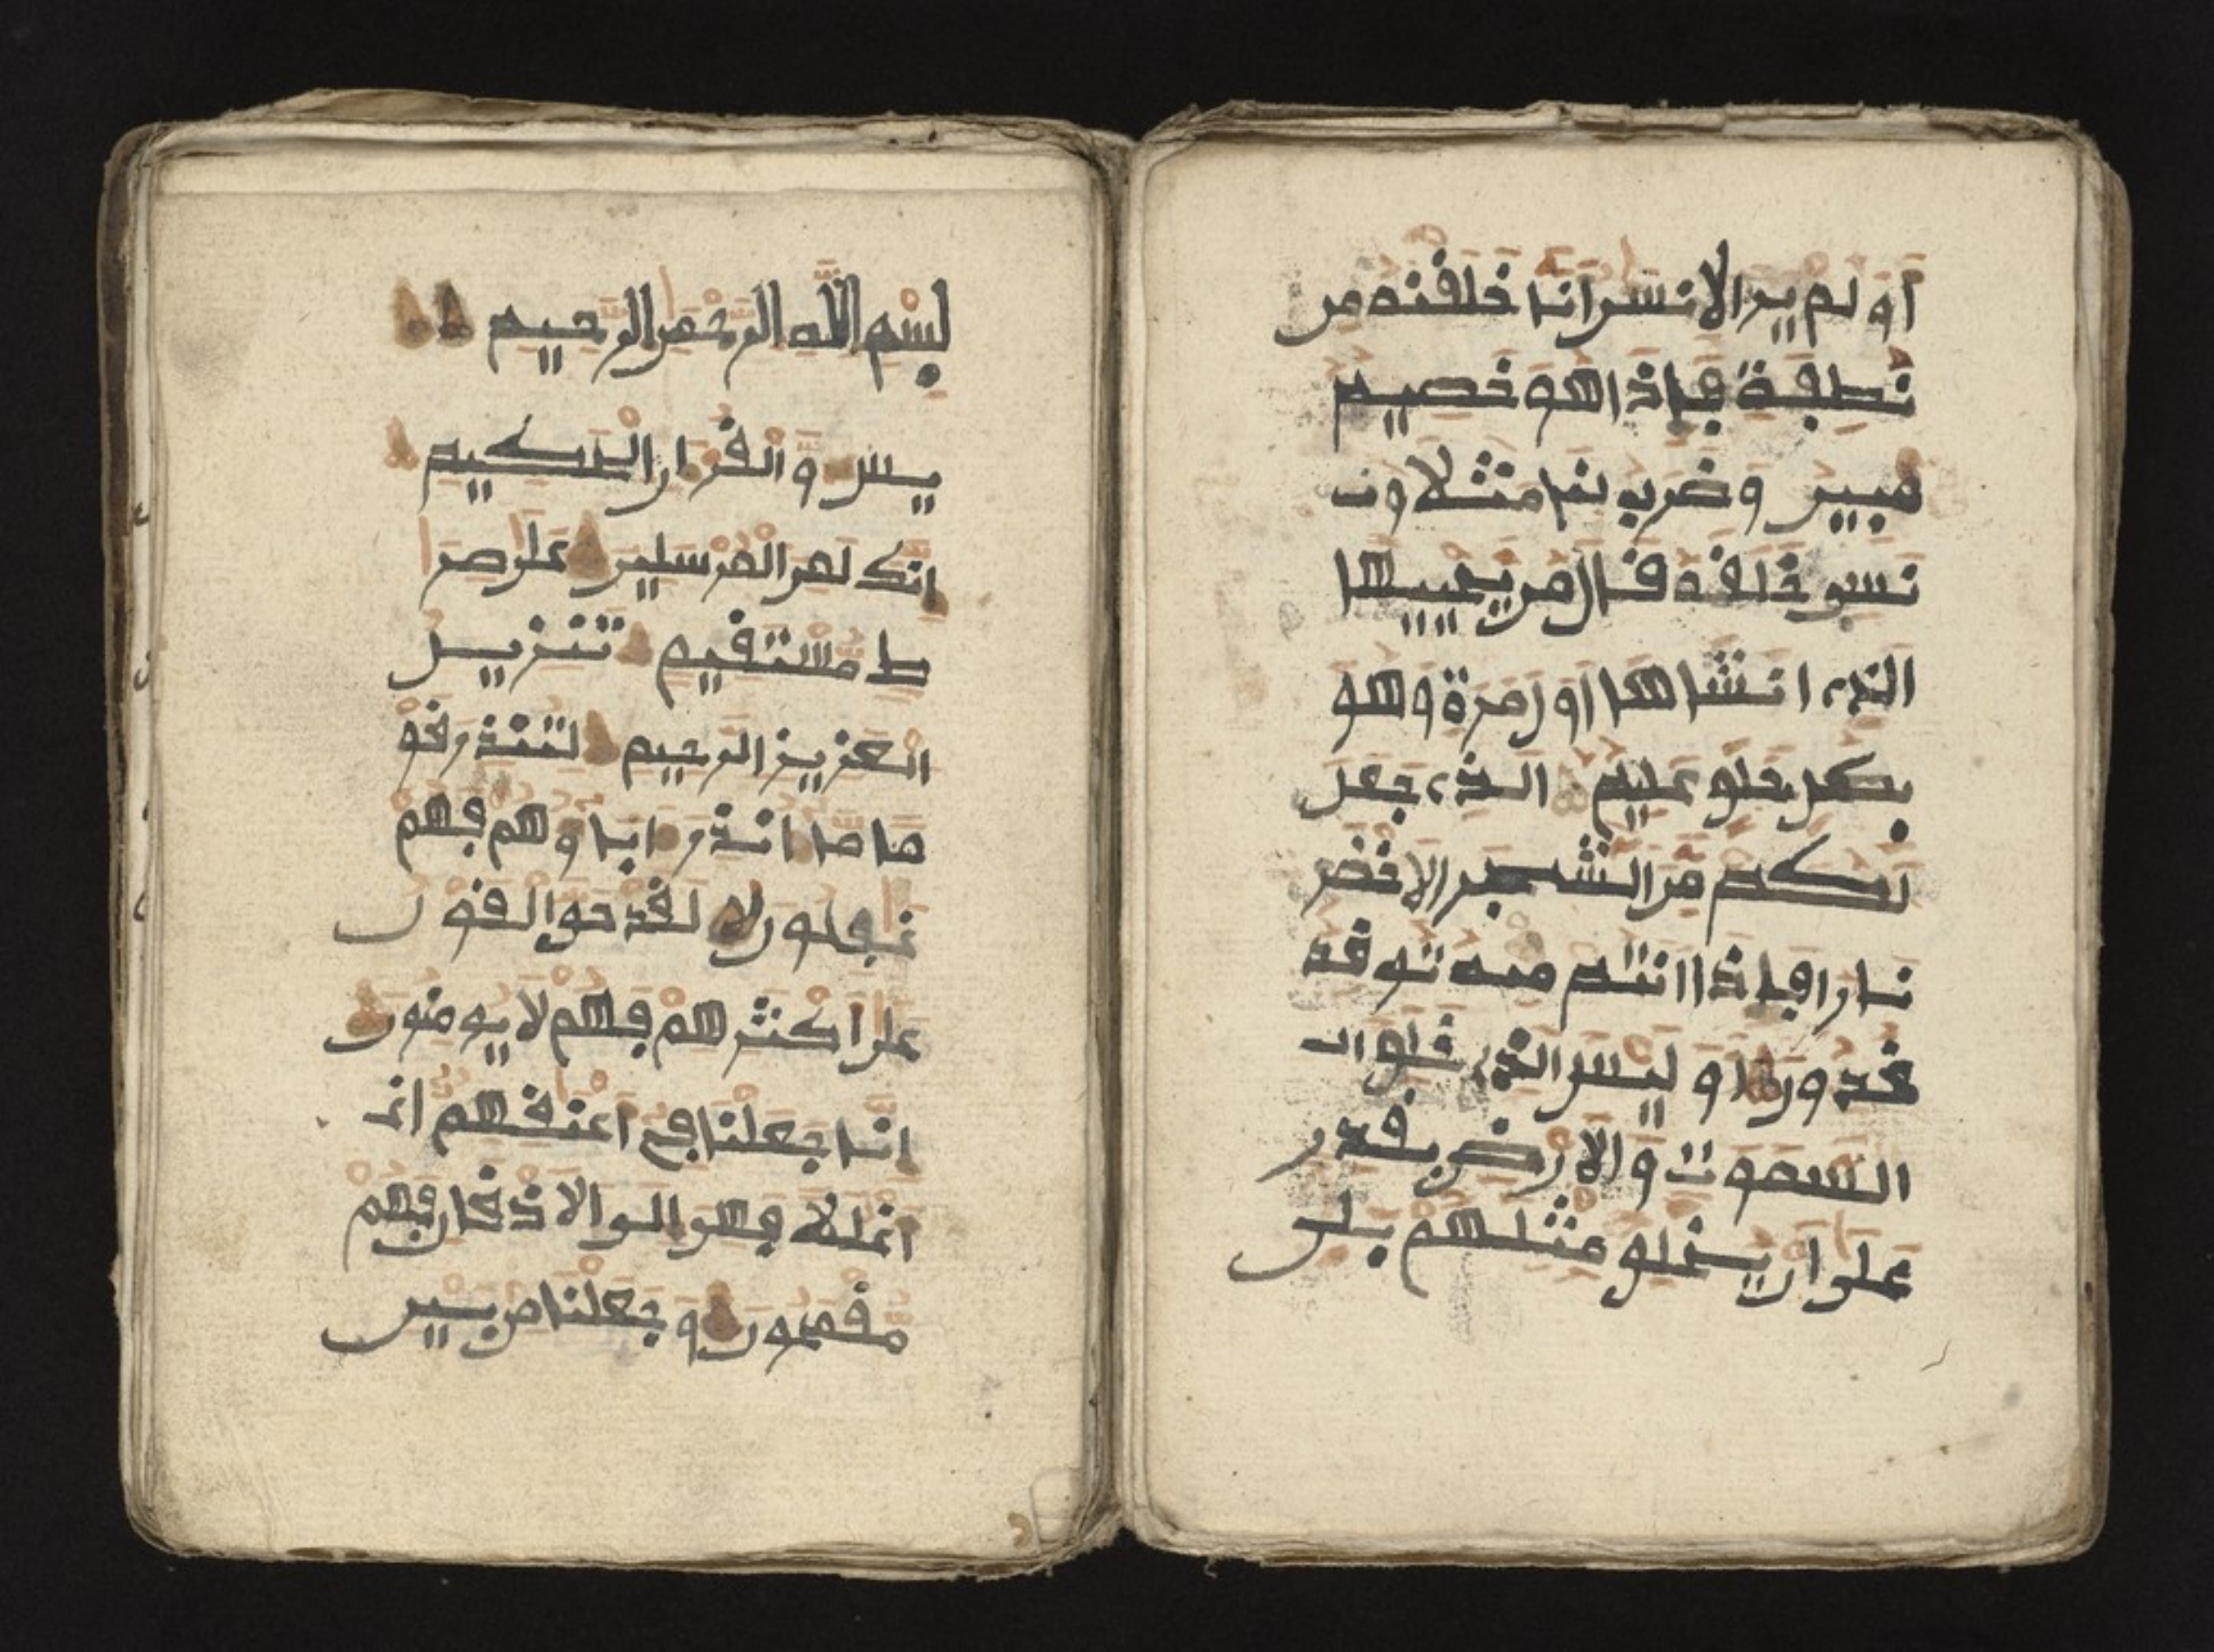 او لم ير الانسن انا خلقنه من
نطفة فاذا هو خصيم
مبين وضرب لنا مثلا ون
نسى خلقه قال من يحييها
الذى انشاها اول مرة وهو
بكل خلق عليم الذى جعل
لكم من الشجر الاخضر
نارا فاذا انتم منه توقد
قدون او ليس الذى خلق ال
السموت والارض بقدر
على ان يخلق مثلهم بلى
بسم الله الرحمن الرحيم
يس والقران الحكيم
انك لمن المرسلين على صرا
ط مستقيم تنزيل
العزيز الرحيم لتنذر قو
ما ما انذر اباوهم فهم
غفلون لقد حق القول
على اكثرهم فهم لا يومنون
انا جعلنا فى اعنقهم اغ
اغللا فهى الى الاذقان فهم
مقمحون وجعلنا من بين